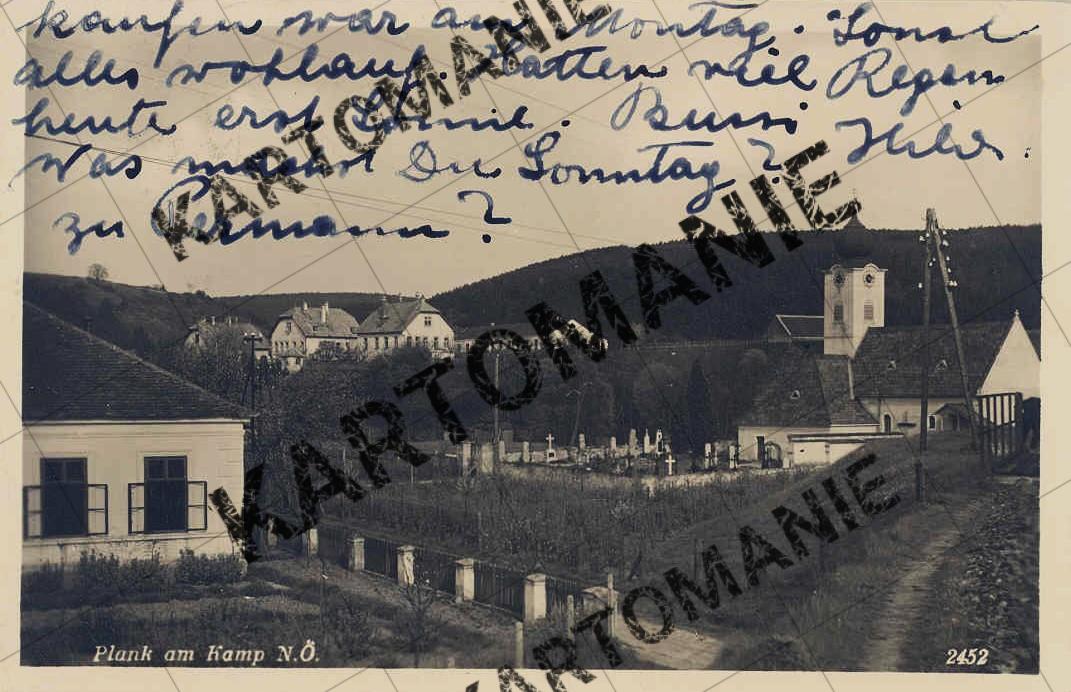 kaufen war am Montag. Sonst
alles wohlauf. Hatten viel Regen
heute erst Sonne. Bussi
Was machst Du Sonntag? Hilde.
zu Permann?
KARTOMANIE
KARTOMANIE
KARTOMANIE
KARTOMANIE
KARTOMANIE
KARTOMANIE
Plank am Kamp N.Ö.
2452